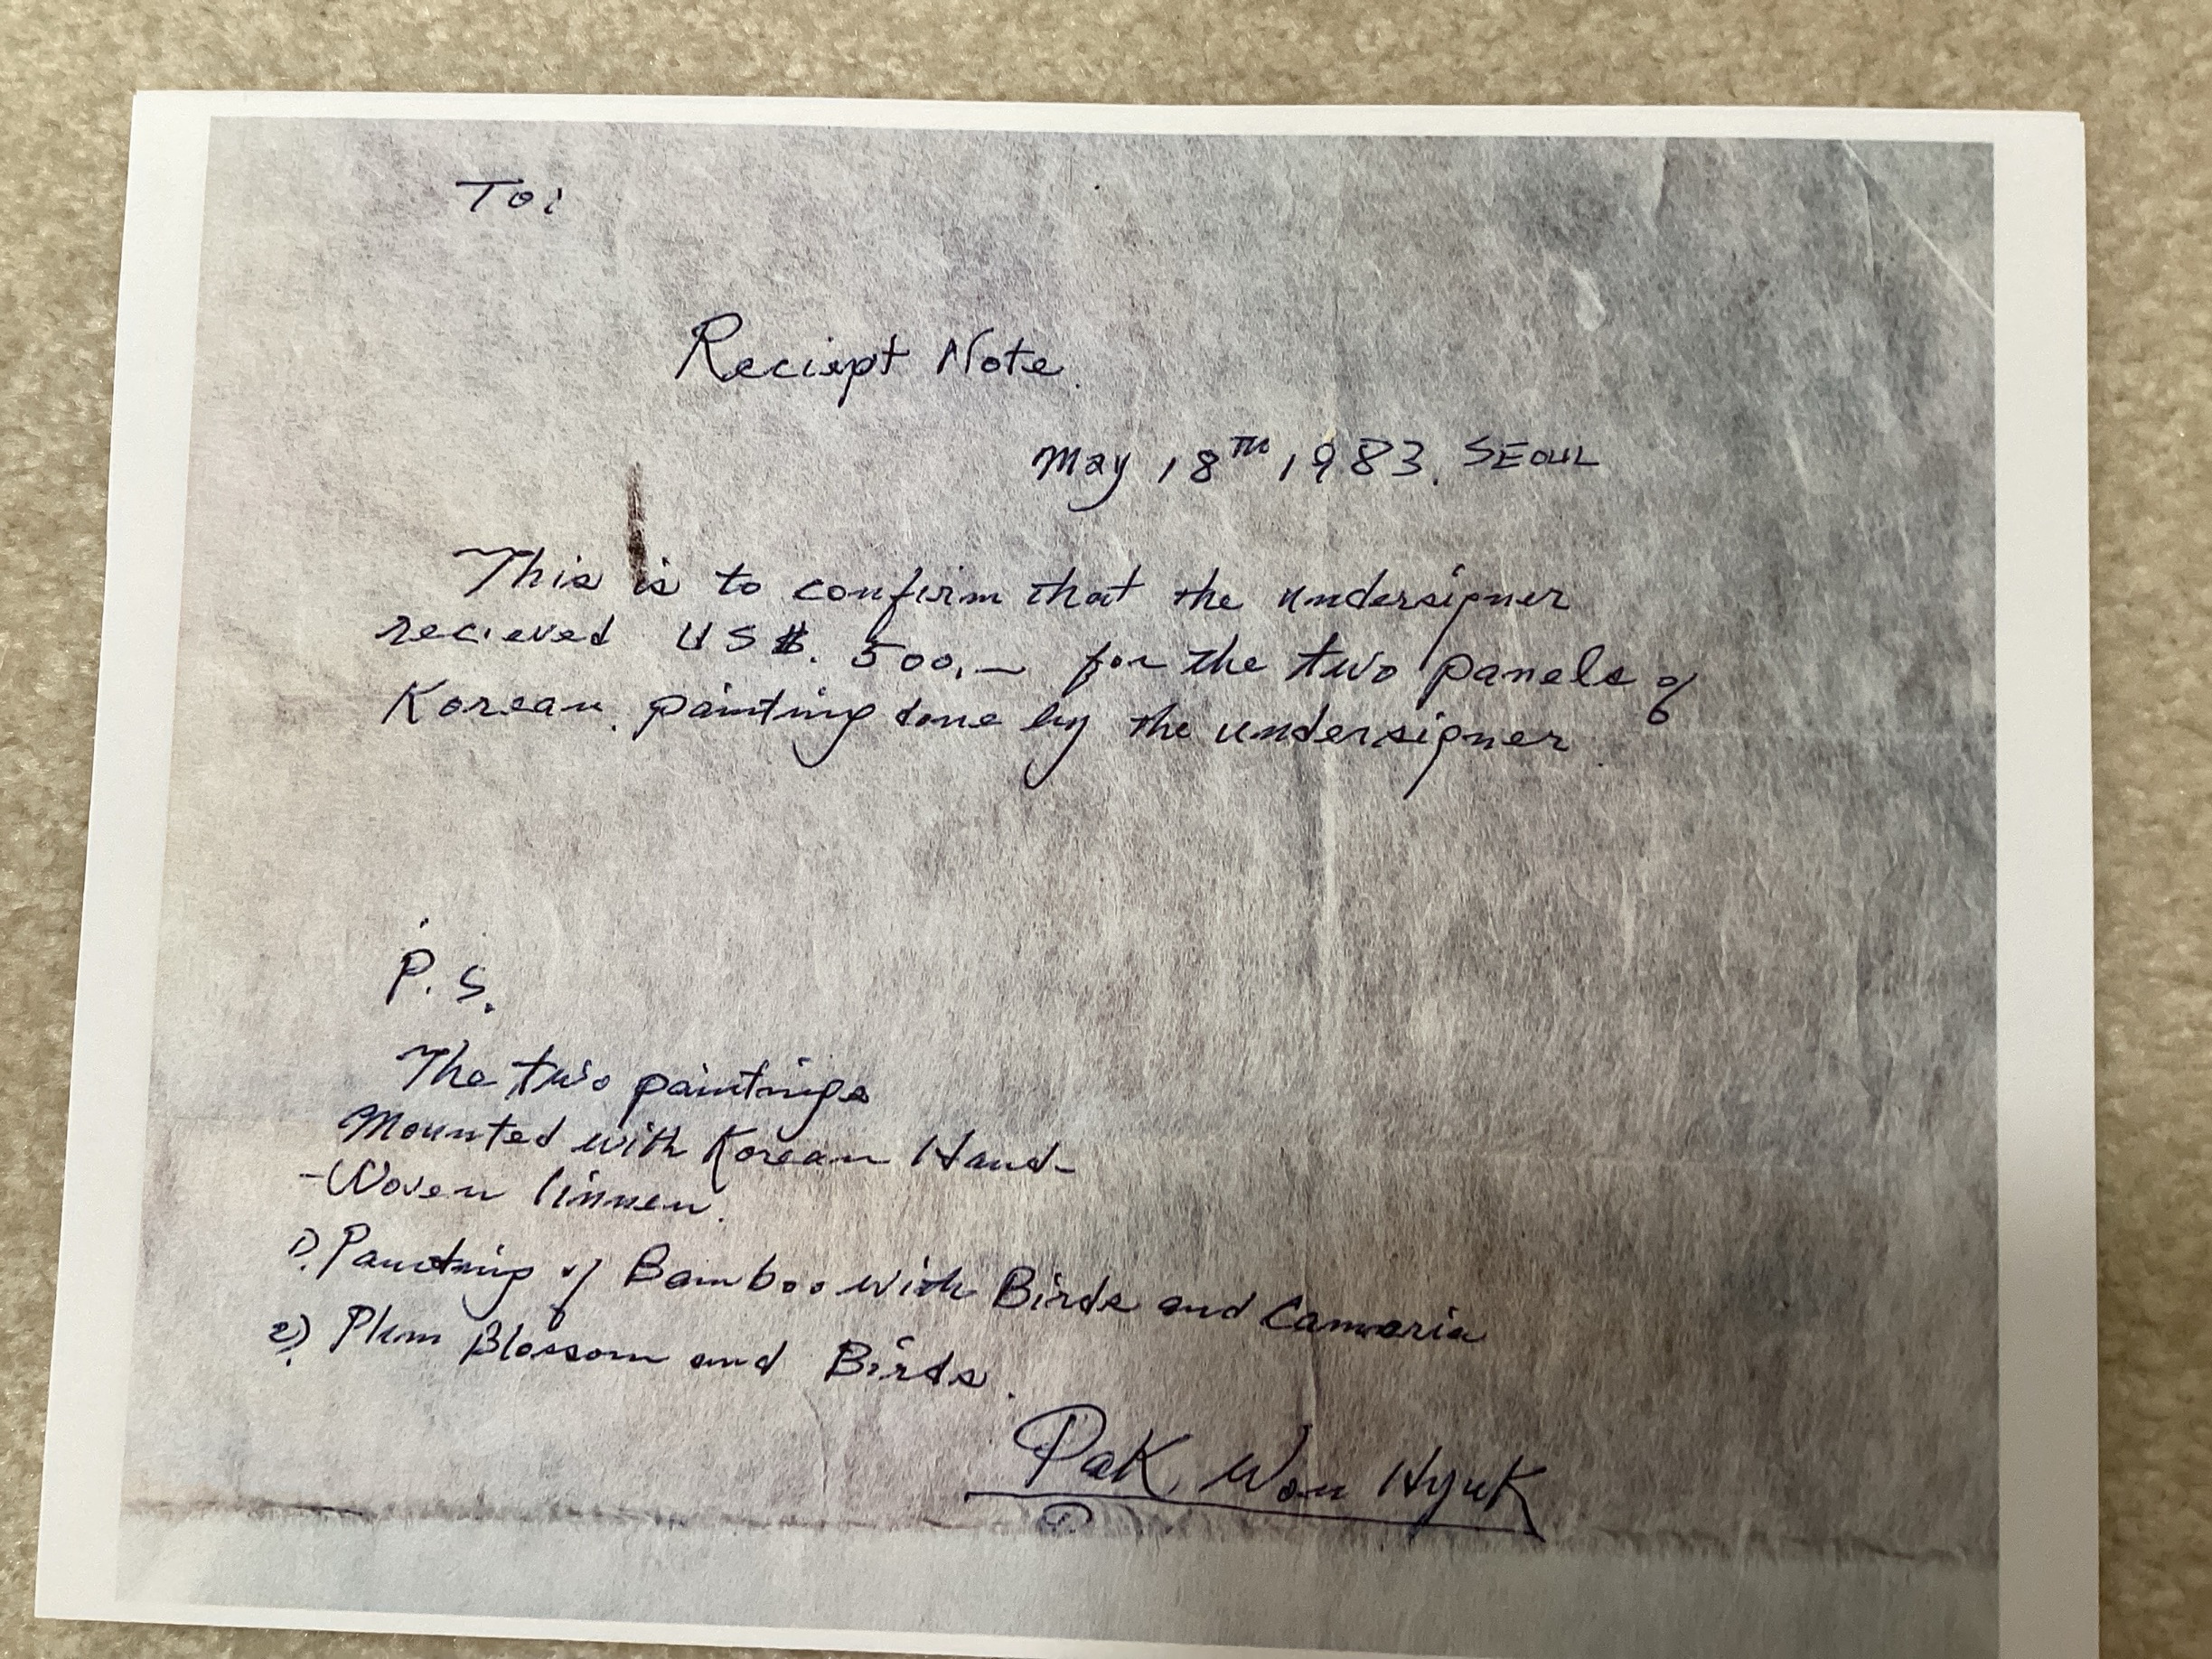 To:
Reciept Note.
May 18TH 1983. SEOUL
This is to confirm that the undersigner
recieved US$. 500.— for the two panels of
Korean painting done by the undersigner
P.S.
The two paintings
Mounted with Korean Hand-
-Woven linnen.
1). Painting of Bamboo with Birds and Camaria
2). Plum Blossom and Birds.
Pak Won Hyuk